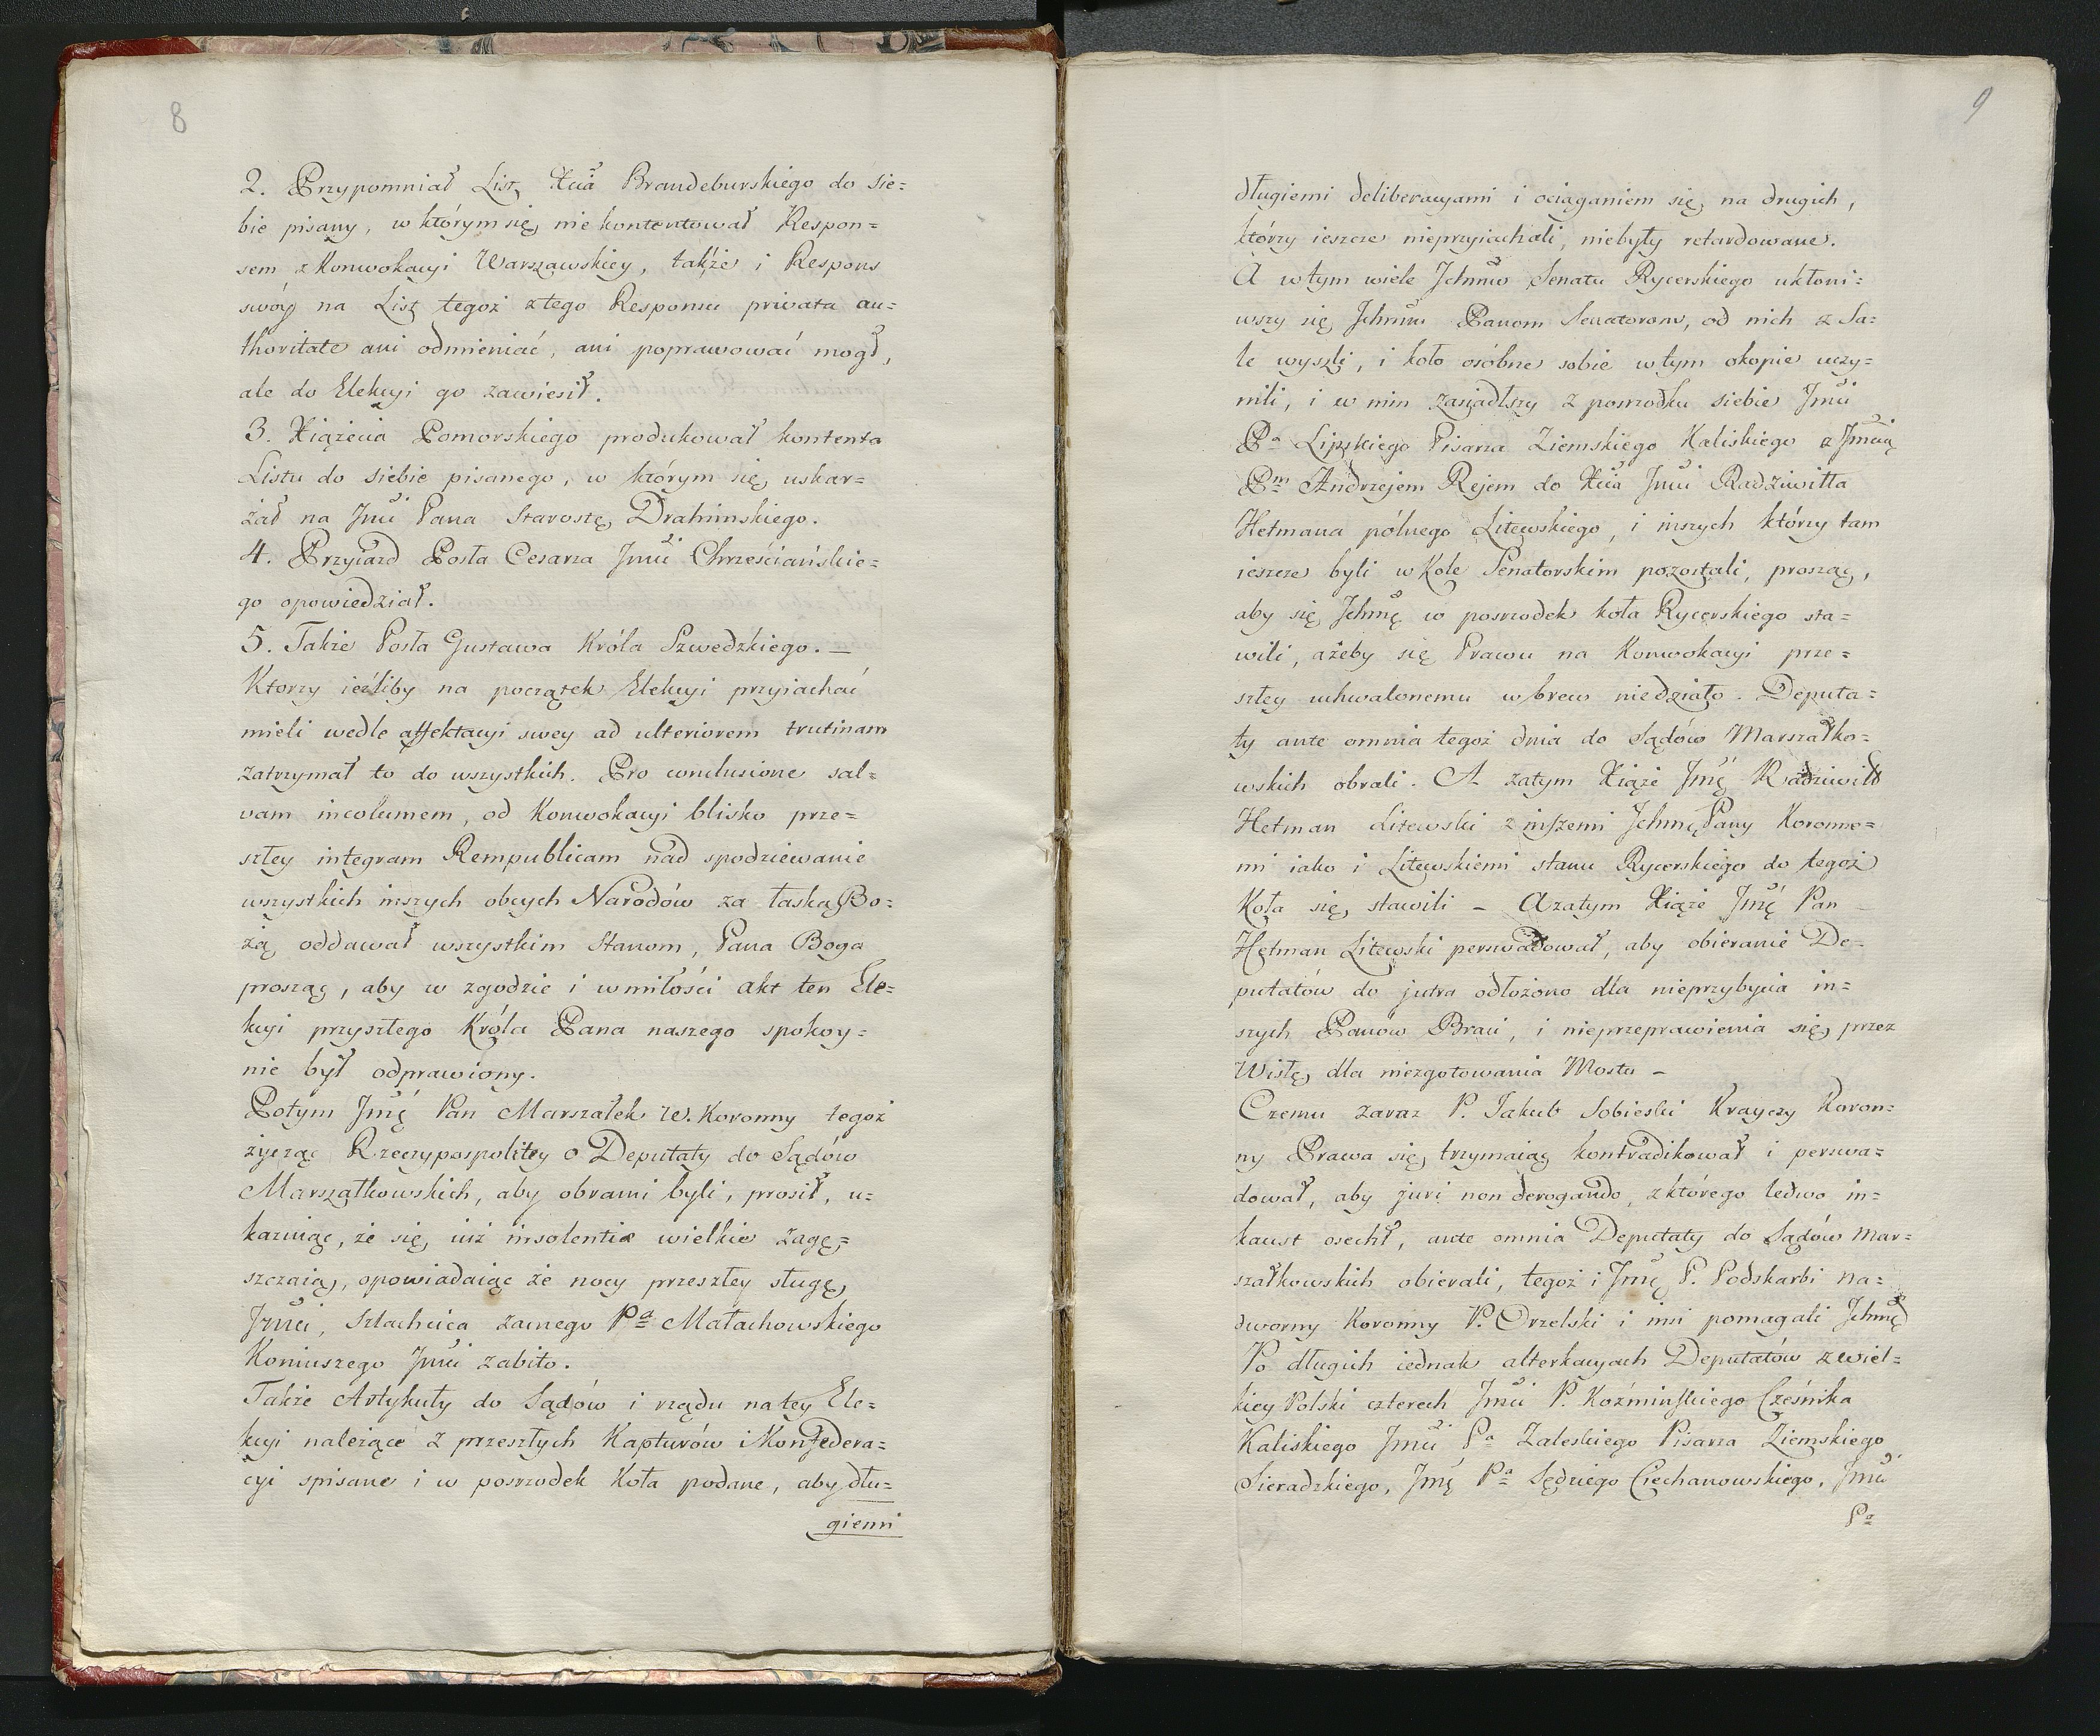 8
2. Przypomniał List Xcia Brandeburskiego do sie=
bie pisany, w którym się nie kontentował Respon=
sem z Konwokacyi Warszawskiey, także i Respons
swóy na List tegoż z tego Responsu privata au=
thoritate ani odmieniać, ani poprawować mogł,
ale do Elekcyi go zawiesił.
3. Xiążęcia Pomorskiego produkował kontenta
Listu do siebie pisanego, w którym się uskar=
żał na Jmći Pana Starostę Drahimskiego.
4. Przyiazd Posła Cesarza Jmći Chrześciańskie=
go opowiedział.
5. Także Posła Gustawa Króla Szwedzkiego. —
Ktorzy ieźliby na początek Elekcyi przyiachać
mieli wedle affektacyi swey ad ulteriorem trutinam
zatrzymał to do wszystkich. Pro conclusione sal=
vam incolumem, od Konwokacyi blisko prze=
szłey integram Rempublicam nad spodziewanie
wszystkich inszych obcych Narodów za łaską Bo=
żą oddawał wszystkim Stanom, Pana Boga
prosząc, aby w zgodzie i w miłości akt ten Ele=
kcyi przyszłego Króla Pana naszego spokoy=
nie był odprawiony.
Potym Jmć Pan Marszałek W. Koronny tegoż
życząc Rzeczypospolitey o Deputaty do Sądów
Marszałkowskich, aby obrami byli, prosił, u=
kazuiąc, że się iuż insolentie wielkie zagę=
szczaią, opowiadaiąc że nocy przeszłey sługę
Jmći, Szlachcica zacnego Pa Małachowskiego
Koniuszego Jmći zabito.
Także Artykuły do Sądów i rządu na tey Ele=
kcyi należące z przeszłych Kapturów i Konfedera=
cyi spisane i w posrzodek Koła podane, aby dłu=
giemi
9
długiemi deliberacyami i ociąganiem się na drugich,
którzy ieszcze nieprzyiachali, niebyły retardowane.
A w tym wiele Jchmw Senatu Rycerskiego ukłoni=
wszy się Jchmm Panom Senatorom, od nich z Sa=
le wyszli, i koło osóbne sobie w tym okopie uczy=
nili, i w nim zasiadłszy z posrzodku siebie Jmći
Pa Lipskiego Pisarza Ziemskiego Kaliskiego z Jmcią
Pm Andrzejem Rejem do Xcia Jmći Radziwiłła
Hetmana pólnego Litewskiego, i inszych którzy tam
ieszcze byli w Kole Senatorskim pozostali, prosząc,
aby się Jchmć w posrzodek koła Rycerskiego sta=
wili, ażeby się Prawu na Konwokacyi prze=
szłey uchwalonemu wbrew niedziało. Deputa=
ty ante omnia tegoż dnia do Sądów Marszałko=
wskich obrali. A zatym Xiąże Jmć Radziwiłł
Hetman Litewski z inszemi Jchmć Pany Koronne=
mi iako i Litewskiemi stanu Rycerskiego do tegoż
Koła się stawili — A zatym Xiąże Jmć Pan
Hetman Litewski perswadował, aby obieranie De=
putatów do jutra odłożono dla nieprzybycia in=
szych Panów Braci, i nieprzeprawienia się przez
Wisłę dla niezgotowania Mostu —
Czemu zaraz P. Jakub Sobieski Krayczy Koron=
ny Prawa się trzymaiąc kontradikował i perswa=
dował, aby juri non derogando, z którego ledwo in=
kaust osechł, ante omnia Deputaty do Sądów Mar=
szałkowskich obierali, tegoż i Jmć P. Podskarbi na=
dworny Koronny P. Orzelski i inni pomagali Jchmć
Po długich iednak alterkacyach Deputatów z wiel=
kiey Polski czterech Jmći P. Koźmińskiego Cześnika
Kaliskiego Jmći Pa Zaleskiego Pisarza Ziemskiego
Sieradzkiego, Jmć Pa Sędziego Ciechanowskiego, Jmći
Pa